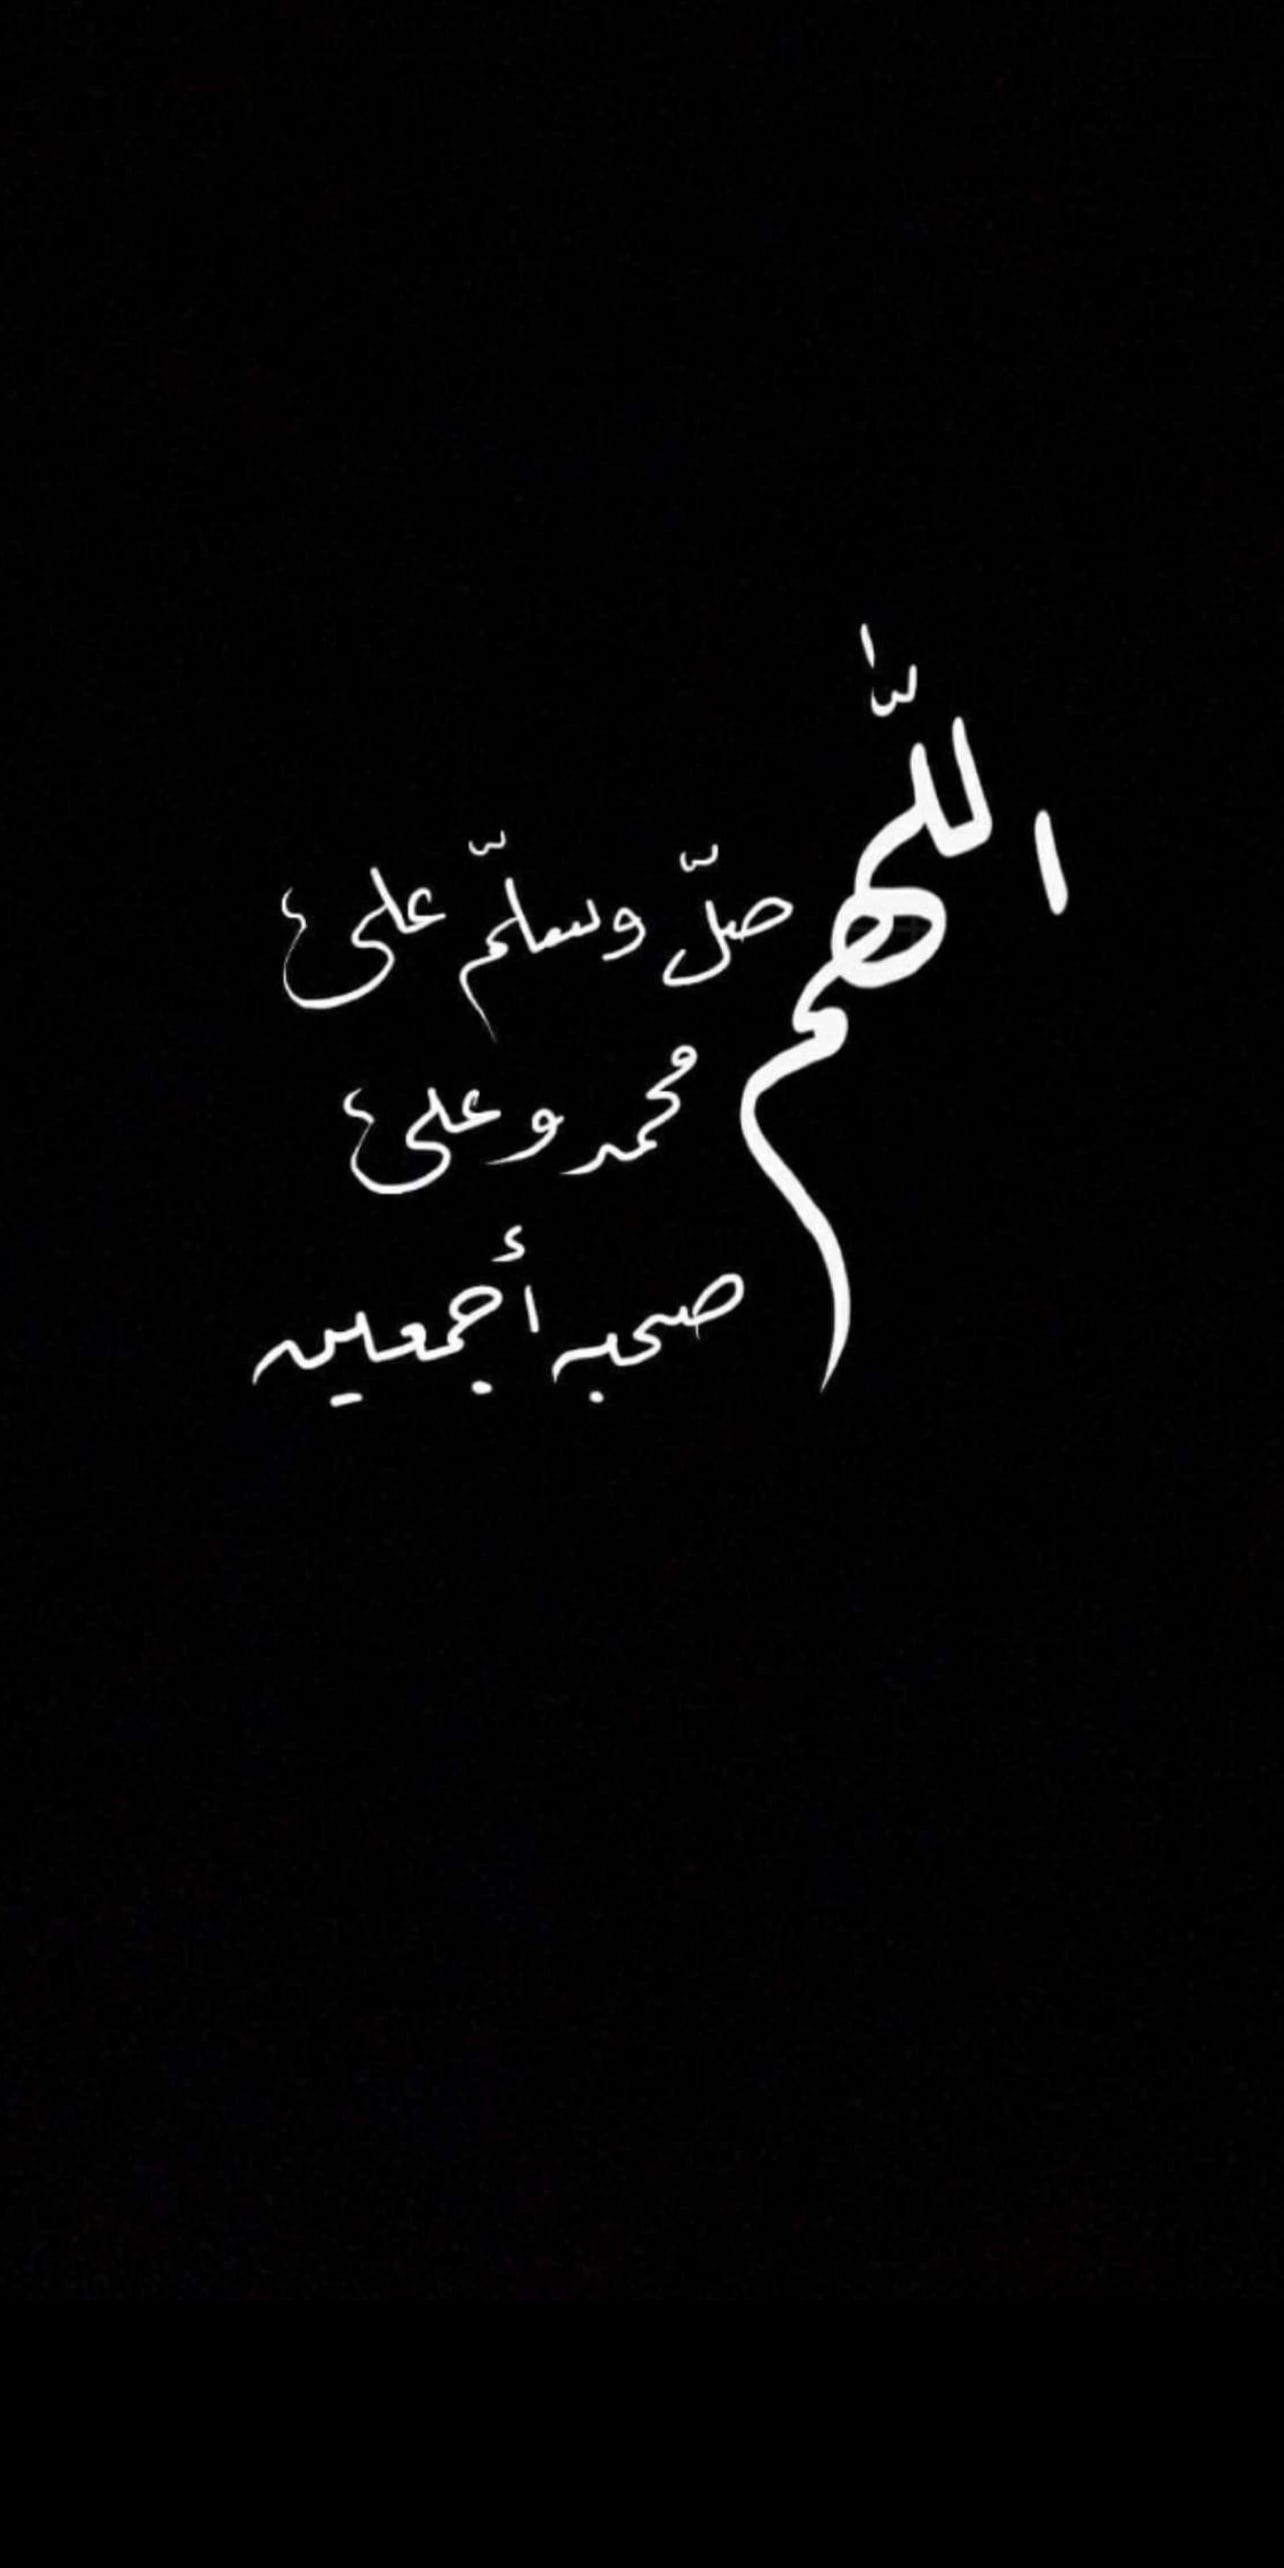 اللّٰهم
صلّ وسلّم على
محمد وعلى
صحبه أجمعين